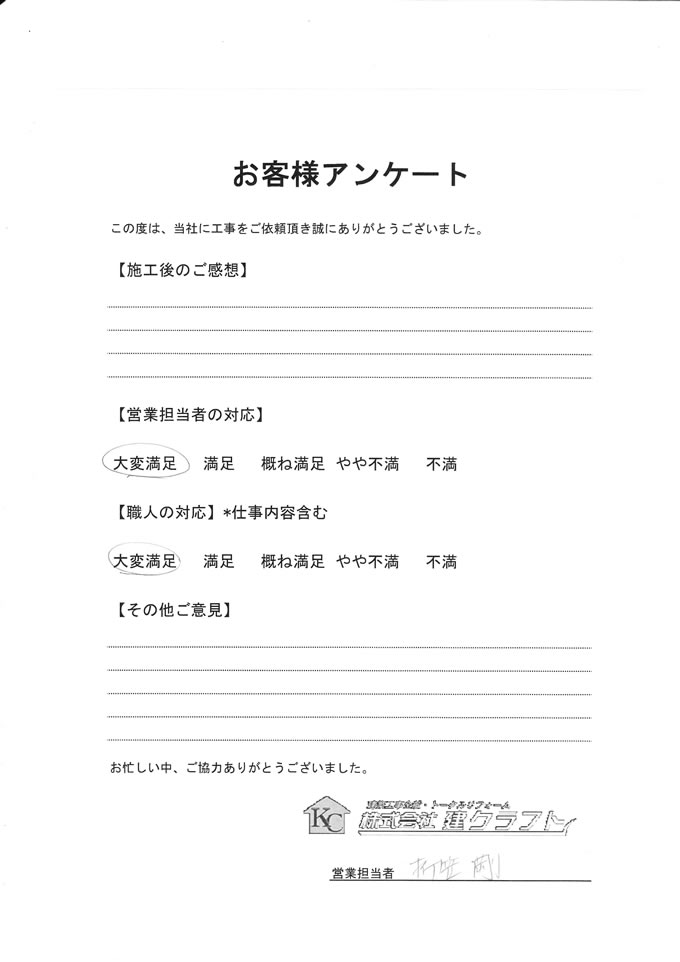 お客様アンケート
この度は、当社に工事をご依頼頂き誠にありがとうございました。
【施工後のご感想】
【営業担当者の対応】
大変満足 満足 概ね満足 やや不満 不満
【職人の対応】*仕事内容含む
大変満足 満足 概ね満足 やや不満 不満
【その他ご意見】
お忙しい中、ご協力ありがとうございました。
KC
・トータルリフォーム
株式会社 建クラフト
営業担当者 折笠 剛